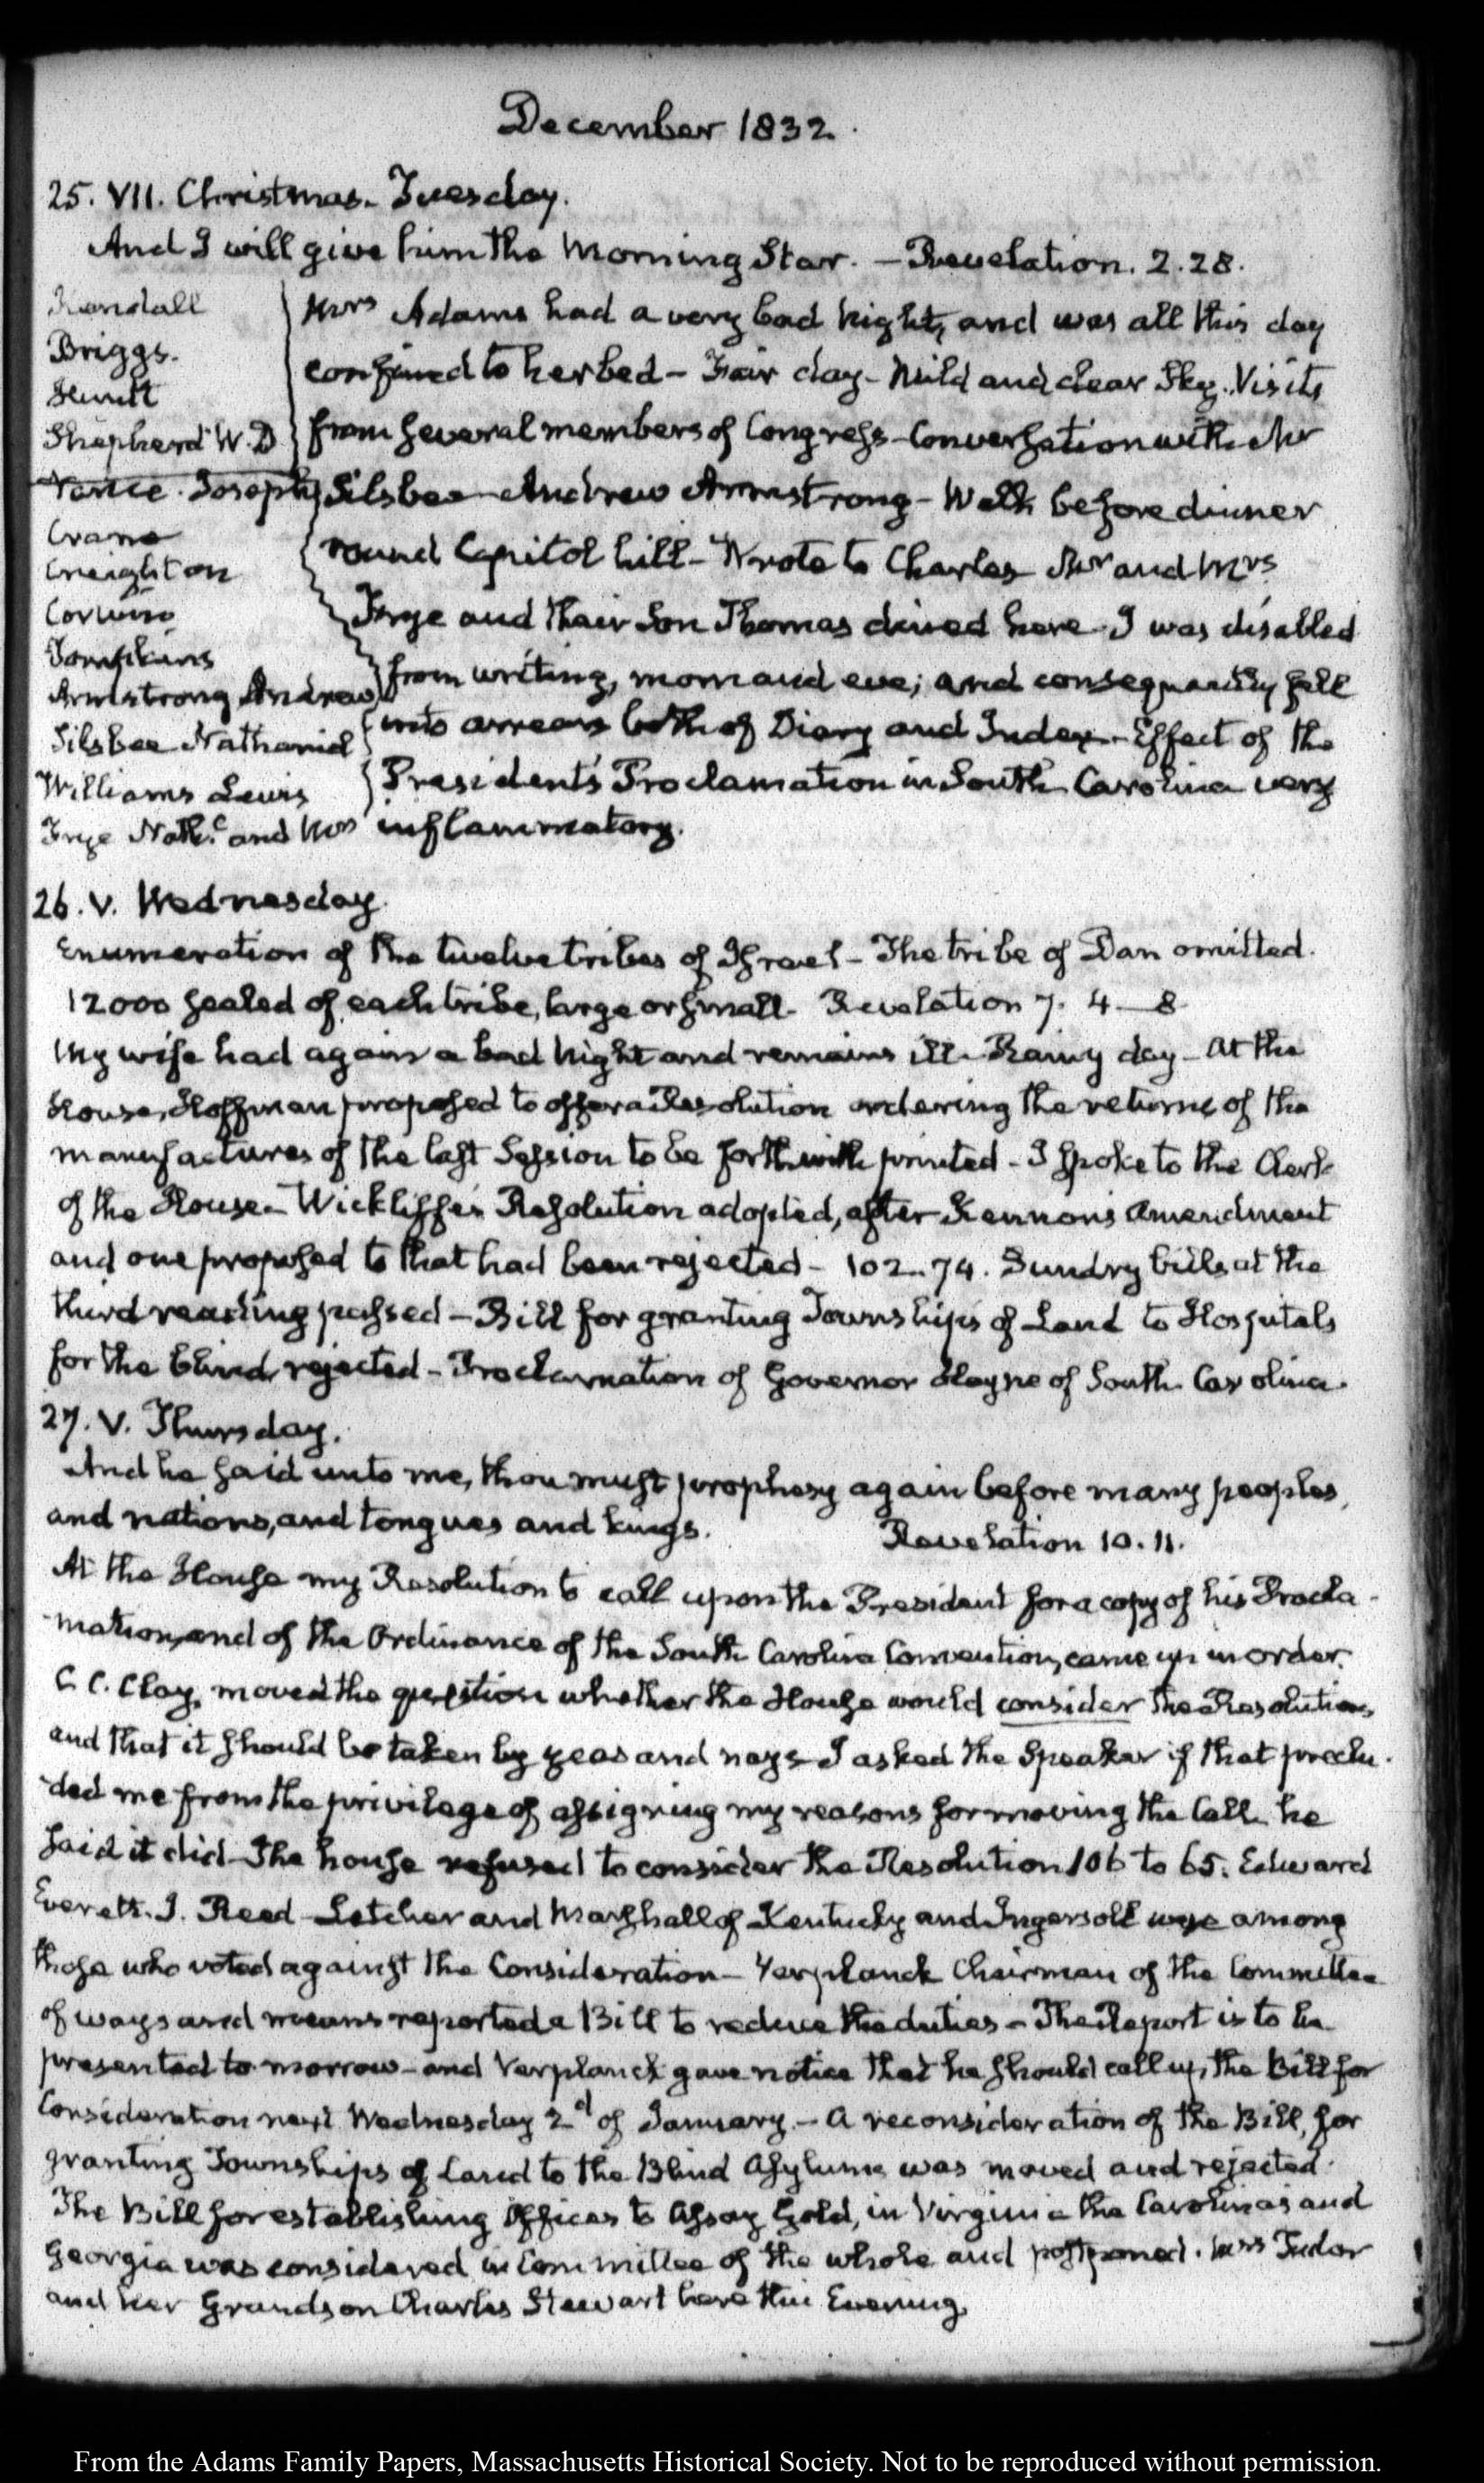 December 1832.
25. VII. Christmas. Tuesday.
And I will give him the Morning Star. — Revelation. 2.28.
Kendall
Briggs.
Hewitt
Shepherd W. D
Vance. Joseph
Crane
Creighton
Corwin
Tompkins
Armstrong Andrew
Silsbee Nathaniel
Williams Lewis
Frye Nathl. and Mrs
Mrs Adams had a very bad night, and was all this day
confined to her bed — Fair day — Mild and clear Sky. Visits
from several members of Congress — Conversation with Mr
Silsbee — Andrew Armstrong — Walk before dinner
round Capitol hill — Wrote to Charles Mr and Mrs
Frye and their Son Thomas dined here. I was disabled
from writing, morn and eve; and consequently fell
into arrears both of Diary and Index — Effect of the
President's Proclamation in South Carolina very
inflammatory.
26. V. Wednesday.
Enumeration of the twelve tribes of Israel — The tribe of Dan omitted.
12000 sealed of each tribe, large or small. Revelation 7. 4—8
My wife had again a bad night and remains ill — Rainy day — At the
House, Hoffman proposed to offer a Resolution ordering the returns of the
manufactures of the last Session to be forthwith printed — I spoke to the Clerk
of the House — Wickliffe's Resolution adopted, after Kennon's Amendment
and one proposed to that had been rejected — 102..74. Sundry bills at the
third reading passed — Bill for granting Townships of Land to Hospitals
for the blind, rejected — Proclamation of Governor Hayne of South Carolina.
27. V. Thursday.
And he said unto me, thou must prophesy again before many peoples,
and nations, and tongues and kings. Revelation 10.11.
At the House my Resolution to call upon the President for a copy of his Procla-
-mation, and of the Ordinance of the South Carolina Convention, came up in order.
C. C. Clay, moved the question whether the House would consider the Resolution,
and that it should be taken by yeas and nays — I asked the Speaker if that preclu-
-ded me from the privilege of assigning my reasons for moving the Call he
said it did — The house refused to consider the Resolution 106 to 65. Edward
Everett. J. Reed — Letcher and Marshall of Kentucky and Ingersoll were among
those who voted against the Consideration — Verplanck Chairman of the Committee
of ways and means reported a Bill to reduce the duties — The Report is to be
presented to morrow — and Verplanck gave notice that he should call up, the Bill for
Consideration next Wednesday 2d of January. — A reconsideration of the Bill, for
granting Townships of Land to the Blind Asylums was moved and rejected.
The Bill for establishing Offices to Assay Gold, in Virginia the Carolinas and
Georgia was considered in Committee of the whole and postponed. Mrs Tudor
and her Grandson Charles Stewart here this Evening.
From the Adams Family Papers, Massachusetts Historical Society. Not to be reproduced without permission.